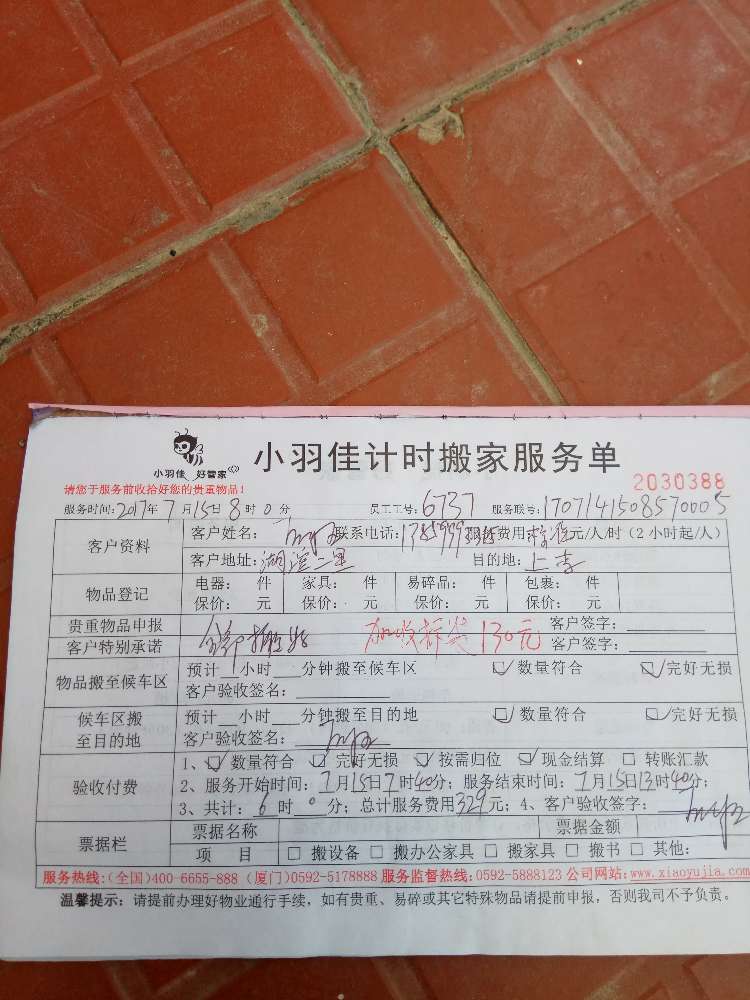 小羽佳 好管家
小羽佳计时搬家服务单
2030388
请您于服务前收拾好您的贵重物品!
服务时间:2017年7月15日8时0分 员工工号:6737 服务联号:1707141508570005
客户资料
客户姓名: 联系电话: 费用 元/人/时(2小时起/人)
客户地址:湖滨二里 目的地:上李
物品登记
电器: 件 家具: 件 易碎品: 件 包裹: 件
保价: 元 保价: 元 保价: 元 保价: 元
贵重物品申报 客户签字:
客户特别承诺 加收拆装130元 客户签字:
物品搬至候车区
预计__小时___分钟搬至候车区 ☑数量符合 ☑完好无损
客户验收签名:
候车区搬至目的地
预计__小时___分钟搬至目的地 ☑数量符合 ☑完好无损
客户验收签名:
验收付费
1、☑数量符合 ☑完好无损 ☑按需归位 ☑现金结算 □转账汇款
2、服务开始时间:7月15日7时40分; 服务结束时间:7月15日13时40分;
3、共计:6时0分; 总计服务费用329元; 4、客户验收签字:
票据栏
票据名称 票据金额
项 目 □ 搬设备 □ 搬办公家具 □ 搬家具 □ 搬书 □ 其他:
服务热线:(全国)400-6655-888 (厦门)0592-5178888 服务监督热线:0592-5888123 公司网站:www.xiaoyujia.com
温馨提示: 请提前办理好物业通行手续, 如有贵重、易碎或其它特殊物品请提前申报, 否则我司不予负责。